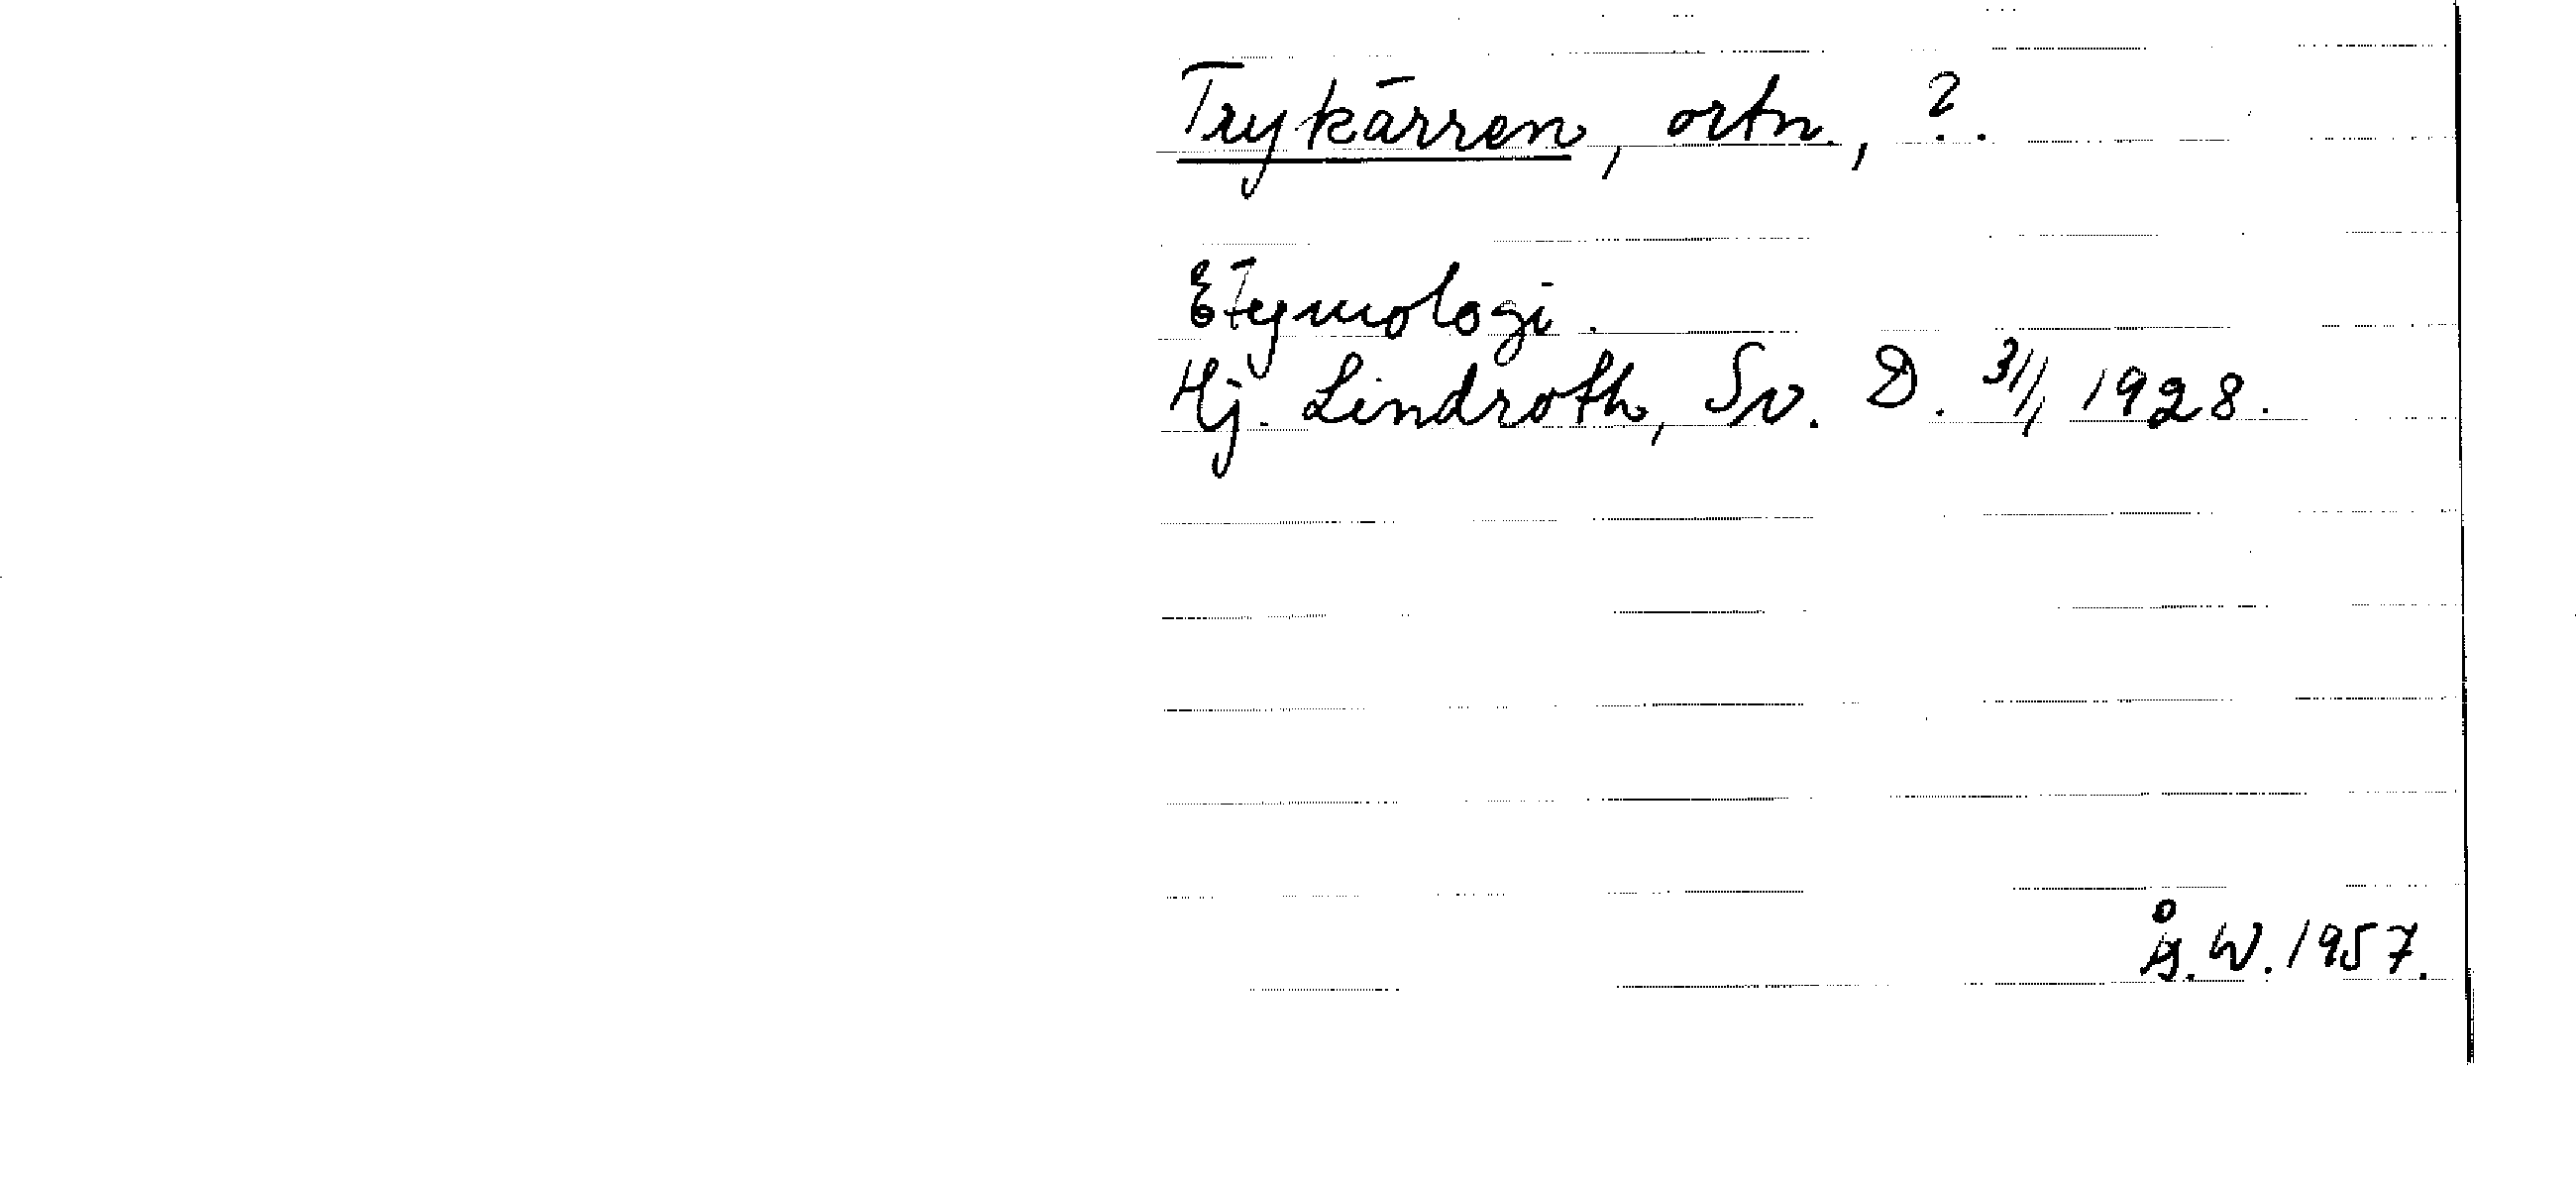 Trykärren, ortn., ?.
Etymologi.
Hj. Lindroth, Sv. D. 31/1 1928.
Å. W. 1957.